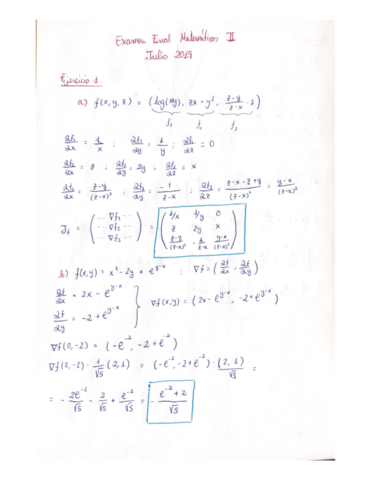 Examen Final Matemáticas II
Julio 2019
Ejercicio 1.
a) f(x,y,z) = (log(xy), zx + y², (z-y)/(z-x) · 1)
f₁ f₂ f₃
∂f₁/∂x = 1/x ; ∂f₁/∂y = 1/y ; ∂f₁/∂z = 0
∂f₂/∂x = z ; ∂f₂/∂y = 2y ; ∂f₂/∂z = x
∂f₃/∂x = (z-y)/(z-x)² ; ∂f₃/∂y = -1/(z-x) ; ∂f₃/∂z = (z-x-z+y)/(z-x)² = (y-x)/(z-x)²
J_f = (... ∇f₁ ... ; ... ∇f₂ ... ; ... ∇f₃ ...) = (1/x 1/y 0 ; z 2y x ; (z-y)/(z-x)² -1/(z-x) (y-x)/(z-x)²)
b) f(x,y) = x² - 2y + e^(y-x) : ∇f = (∂f/∂x, ∂f/∂y)
∂f/∂x = 2x - e^(y-x)
∂f/∂y = -2 + e^(y-x)
∇f(x,y) = (2x - e^(y-x), -2 + e^(y-x))
∇f(0,-2) = (-e⁻², -2 + e⁻²)
∇f(0,-2) · 1/√5 (2,1) = (-e⁻², -2 + e⁻²) · (2,1)/√5 =
= -2e⁻²/√5 - 2/√5 + e⁻²/√5 = - (e⁻² + 2)/√5